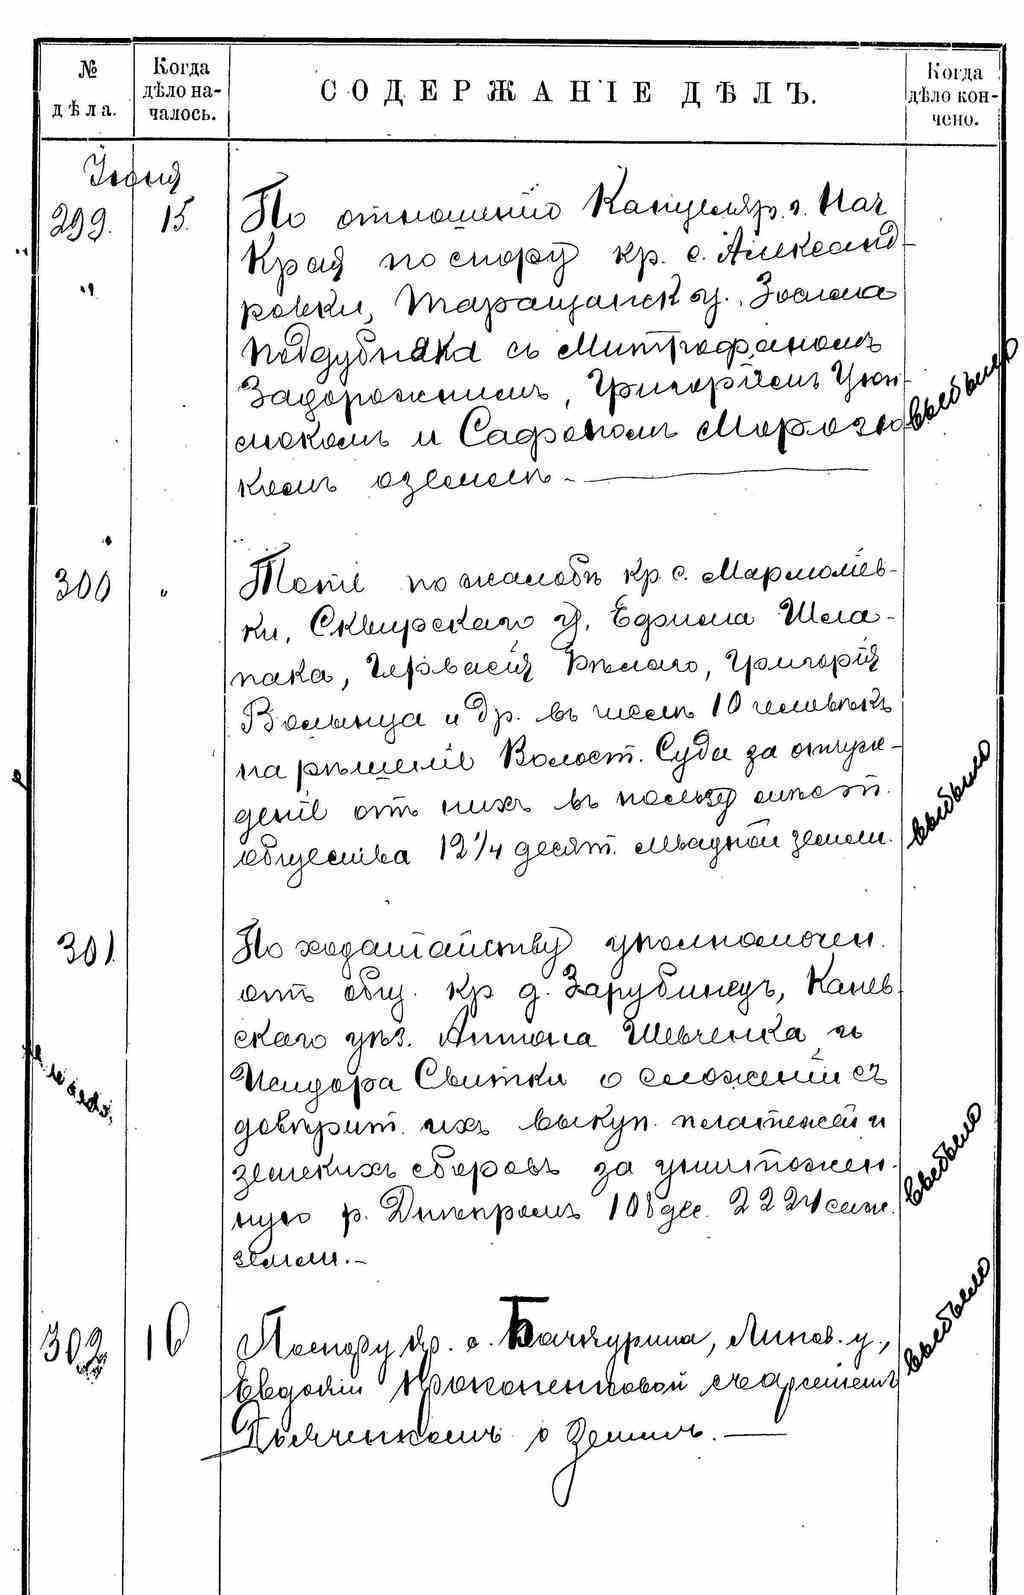 №
дѣла.
Когда
дѣло на-
чалось.
СОДЕРЖАНІЕ ДѢЛЪ.
Когда
дѣло кон-
чено.
Іюня
299. 15. По отношенію Канцеляр. г. Нач
Края по спору кр. с. Александ-
ровки, Таращанск у. Зосима
Поддубняка съ Митрофаномъ
Задорожнимъ, Григоріемъ
и Сафономъ
комъ о землѣ. —
выбыло
300 " Тоже по жалобѣ кр с. Мармоліев-
ки, Сквирскаго у. Ефима Шла-
пака, Гервасія Бѣлаго, Григорія
Волынца и др. въ числѣ 10 человѣкъ
на рѣшеніе Волост. Суда за отчуж-
деніе отъ нихъ въ пользу сельст.
общества 12 1/4 десят. земли.
выбыло
301 По ходатайству уполномочен.
отъ общ. кр д. Зарубинецъ, Канев-
скаго уѣз. Антона Шевченка и
Исидора Свитки о сложеніи съ
довѣрит. ихъ выкуп. платежей и
земскихъ сборовъ за уничтожен-
ную р. Днѣпромъ 108 дес. 2224 саж.
земли. —
выбыло
302 16 По спору кр. с. Бачкурина, Липов. у.,
Евдокіи Прокопенковой съ
Дьяченкомъ о землѣ. —
выбыло